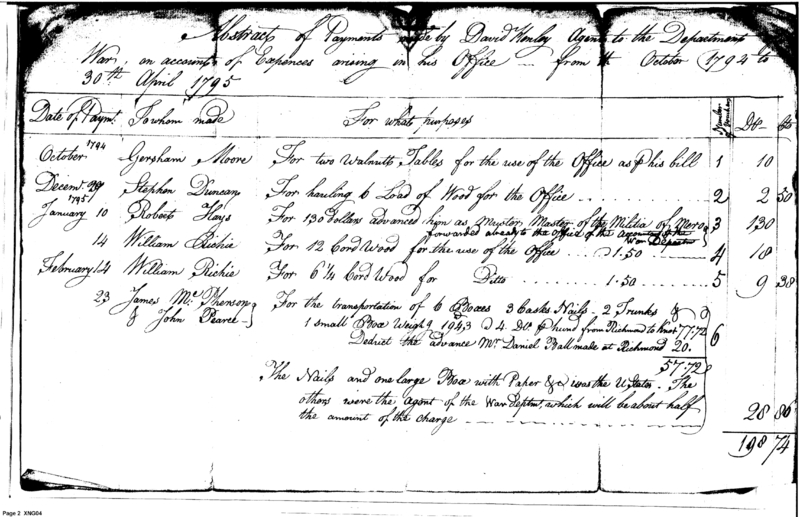 Abstract of Payments made by David Henley Agent to the Department
War, on account of Expences arising in his Office ... from October 1794 to
30th April 1795
Date of Paymt. To whom made For what purposes Number Vouchers Drs Cts
1794
October Gersham Moore For two Walnutt Tables for the use of the Office as p his bill 1 10
Decemr. 29 Stephen Duncan For hauling 6 Load of Wood for the Office 2 2 50
1795
January 10 Robert Hays For 130 dollars advanced him as Muster Master of the Militia of Mero 3 130
forwarded already to the Office of the
War Departmt
14 William Richie For 12 Cord Wood for the use of the Office 1.50 4 18
February 14 William Richie For 6 1/4 Cord Wood for Ditto 1.50 5 9 38
23 James Mc. Pherson For the transportation of 6 Boxes 3 Casks Nails 2 Trunks &
& John Pearce 1 small Box Weighg 1943 a 4 Drs p hund from Richmond to Knox 77.72 6
Deduct the advance Mr Daniel Ball made at Richmond 20.
57.72
The Nails and one large Box with Paper &c was the U States. The
others were the Agent of the War Deptmt, which will be about half
the amount of the charge 28 86
198 74
Page 2 XNG04